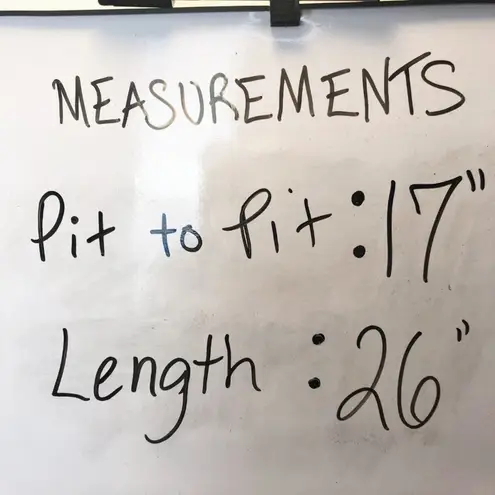 MEASUREMENTS
Pit to Pit : 17"
Length : 26"